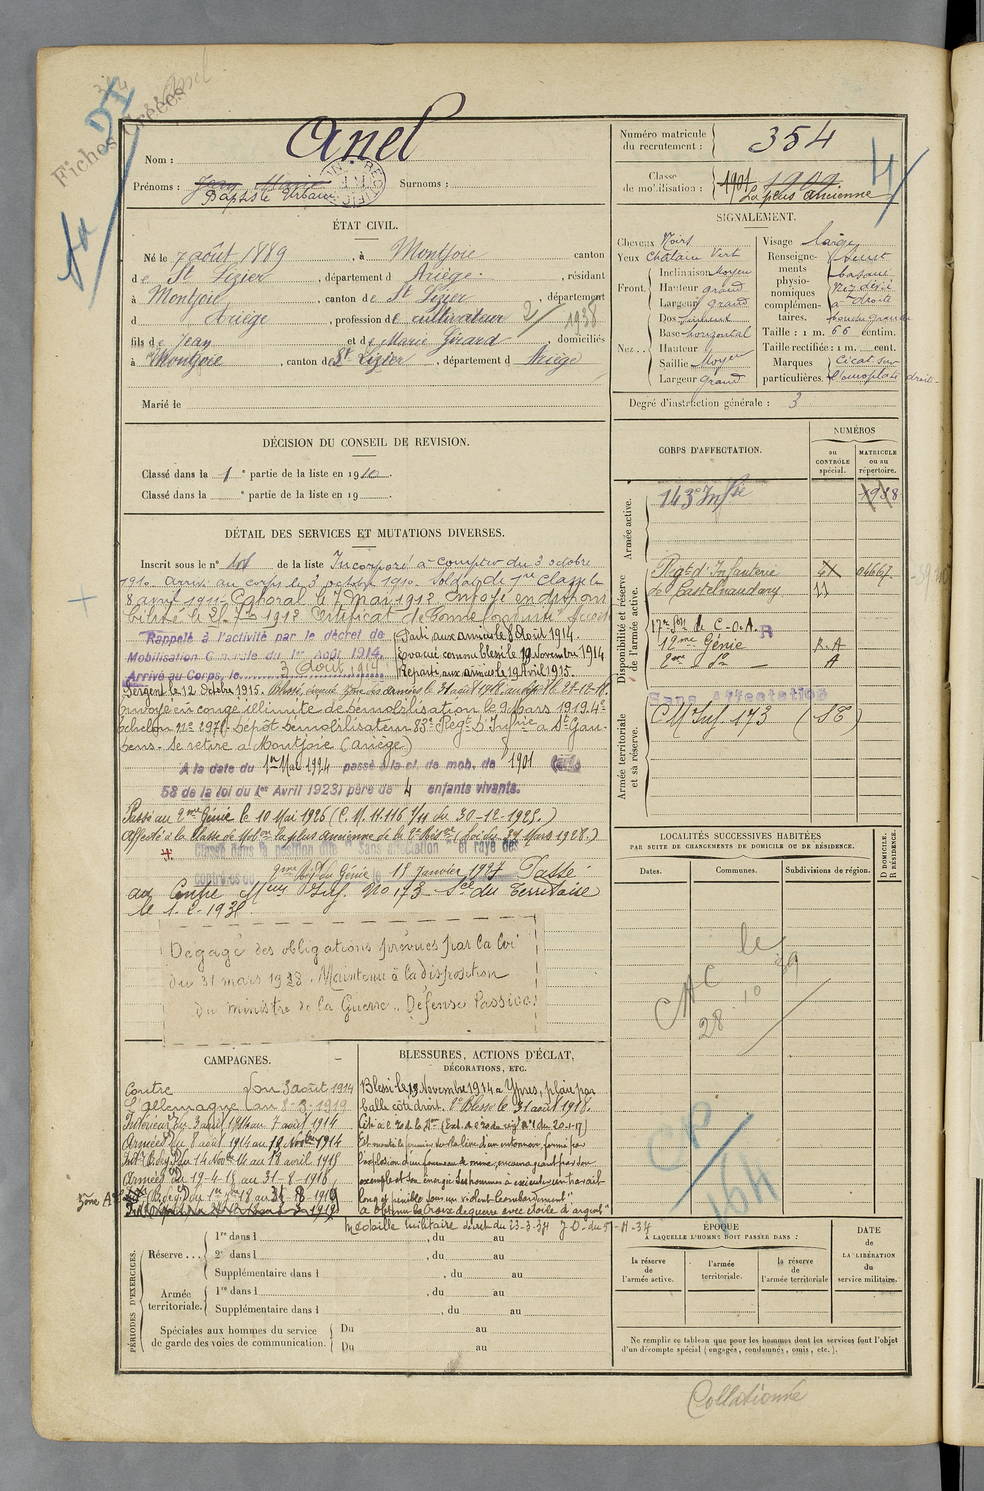 Fiches Créées
Anel
Nom : Anel
Prénoms : Jean Marie Surnoms :
Baptiste Urbain
Numéro matricule du recrutement : 354
Classe de mobilisation : 1901 1909
La plus ancienne
ÉTAT CIVIL.
Né le 7 août 1889, à Montjoie canton
de St Lizier, département d Ariège, résidant
à Montjoie, canton de St Lizier, département
d Ariège, profession de cultivateur 2/1938
fils de Jean et de Marie Girard domiciliés
à Montjoie, canton de St Lizier, département d Ariège
Marié le
SIGNALEMENT.
Cheveux Noirs
Yeux Chatain Vert
Front. Inclinaison Moyen
Hauteur grand
Largeur grand
Nez Dos sinueux
Base horizontal
Hauteur
Saillie Moyen
Largeur Grand
Visage large
Renseignements physionomiques complémentaires.
basané
Nez dévié
à droite
bouche grande
Taille : 1 m. 66 centim.
Taille rectifiée : 1 m. cent.
Marques particulières. Cicat. sur
l'omoplate droite
Degré d'instruction générale : 3
DÉCISION DU CONSEIL DE REVISION.
Classé dans la 1e partie de la liste en 1910.
Classé dans la e partie de la liste en 19
DÉTAIL DES SERVICES ET MUTATIONS DIVERSES.
Inscrit sous le n° de la liste Incorporé à compter du 3 octobre
1910. Arrivé au corps le 3 octobre 1910. Soldat de 1re Classe le
8 avril 1911. Caporal le 7 Mai 1912. Envoyé en disponi
bilité le 1912 Certificat de bonne conduite "Accordé"
Rappelé à l'activité par le décret de
Mobilisation Générale du 1er Août 1914.
Arrivé au Corps, le 3 Août 1914
Parti aux armées le 8 Août 1914.
Évacué comme blessé le 19 Novembre 1914
Reparti aux armées le 19 Avril 1915.
Sergent le 12 Octobre 1915. Blessé, évacué zone des armées le 31 août 1918.
Envoyé en congé illimité de démobilisation le 9 Mars 1919. 4e
échelon n° 2971. Dépôt démobilisateur 83e Régt d'Infrie à St Gau-
dens. Se retire à Montjoie (Ariège)
A la date du 1er Mai 1924 passé à la cl. de mob. de 1901
58 de la loi du 1er Avril 1923) père de 4 enfants vivants.
Passé au 2me Génie le 10 Mai 1926 (C. M. 11.116 1/11 du 30-12-1925.)
Affecté à la Classe de Mobon la plus ancienne de la 2e Résve (loi du 31 Mars 1928.)
Classé dans la position dite "Sans affectation" et rayé des
contrôles du 2me Régt du Génie le 15 janvier 1927 Passé
au Centre Mtion Inf. No 173 - Sce du Territoire
le 1-2-193
Dégagé des obligations prévues par la loi
du 31 mars 1928. Maintenu à la disposition
du ministre de la Guerre.. Défense Passive.
CORPS D'AFFECTATION.
NUMÉROS
au CONTRÔLE spécial.
MATRICULE ou au répertoire.
Armée active.
143e Infie
Disponibilité et réserve de l'armée active.
Régt d'Infanterie 04667
de Castelnaudary 11
17e Son de C-O-A. R
18me Génie R.A
2me do A
Sans affectation
Armée territoriale et sa réserve.
C M Inf 173 (ST)
LOCALITÉS SUCCESSIVES HABITÉES
PAR SUITE DE CHANGEMENTS DE DOMICILE OU DE RÉSIDENCE.
Dates. Communes. Subdivisions de région.
D DOMICILE. R RÉSIDENCE.
CAC le
28 10 39
CP
164
CAMPAGNES.
Contre du 3 août 1914
l'Allemagne au 8-3-1919
Intérieur du 3 août 1914 au 7 août 1914
Armées du 8 août 1914 au 19 Novbre 1914
Armées du 19-4-15 au 31-8-1918
BLESSURES, ACTIONS D'ÉCLAT,
DÉCORATIONS, ETC.
Blessé le 19 Novembre 1914 à Ypres, plaie par
balle côté droit. 2e Blessé le 31 août 1918.
Est monté le premier sur la lèvre d'un entonnoir formé par
l'explosion d'un fourneau de mine, encourageant par son
exemple et son énergie ses hommes à exécuter un travail
long et pénible sous un violent bombardement"
a obtenu la Croix de guerre avec étoile d'argent"
Médaille Militaire décret du 23-3-34 J.O. du 5-4-34
PÉRIODES D'EXERCICES.
Réserve ... 1re dans l , du au
2e dans l , du au
Supplémentaire dans l , du au
Armée territoriale. 1re dans l , du au
Supplémentaire dans l , du au
Spéciales aux hommes du service de garde des voies de communication. Du au
Du au
ÉPOQUE
A LAQUELLE L'HOMME DOIT PASSER DANS :
la réserve de l'armée active.
l'armée territoriale.
la réserve de l'armée territoriale
DATE DE LA LIBÉRATION du service militaire.
Ne remplir ce tableau que pour les hommes dont les services font l'objet
d'un décompte spécial (engagés, condamnés, omis, etc.).
Collationné